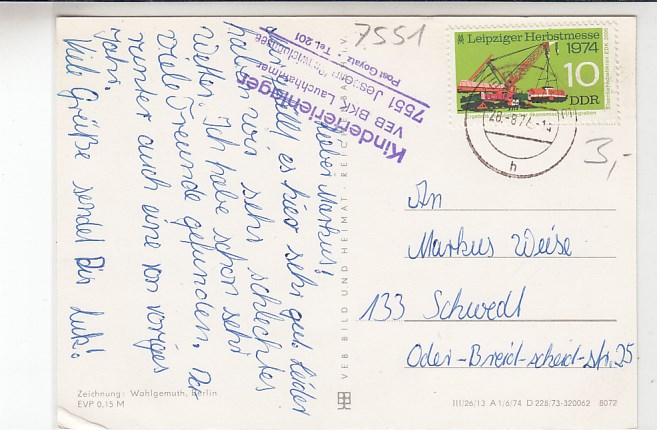 7551
Leipziger Herbstmesse
1974
10
DDR
Kinderferienlager
VEB BKK Lauchhammer
7551 Jessern
Post Goyatz Tel. 201
h
3,-
Lieber Markus!
es hier sehr gut. Leider
haben wir sehr schlechtes
Wetter. Ich habe schon sehr
viele Freunde gefunden. Der
runter auch eine von voriges
Jahr.
Viele Grüße sendet Dir Lutz!
An
Markus Weise
133 Schwedt
Oder-Breid-scheid-str. 25
VEB BILD UND HEIMAT · REICHENBACH
Zeichnung: Wohlgemuth, Berlin
EVP 0,15 M
III/26/13 A 1/6/74 D 228/73-320062 8072